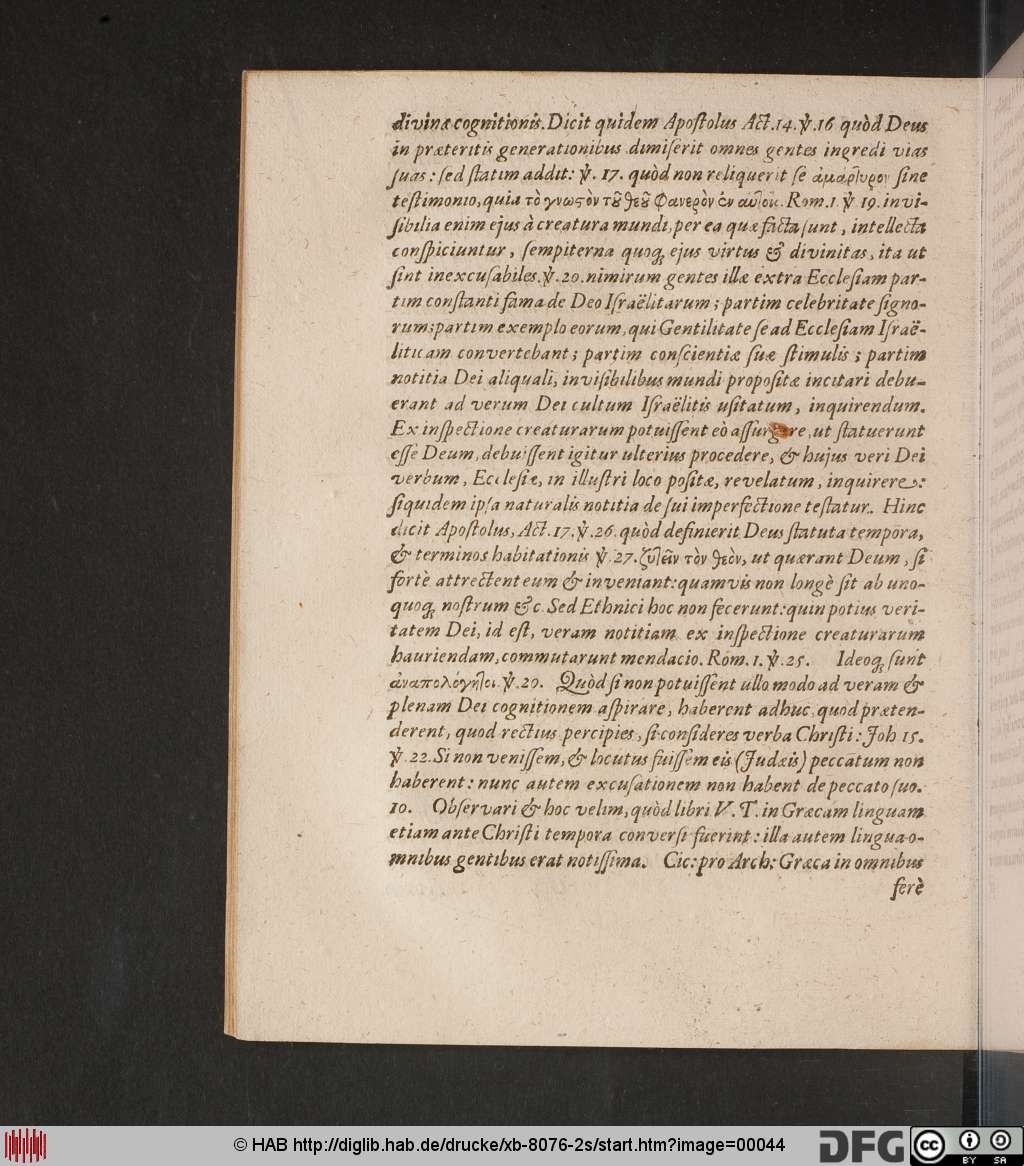 divinæ cognitionis. Dicit quidem Apoſtolus Act. 14. ℣. 16 quòd Deus
in præteritis generationibus dimiſerit omnes gentes ingredi vias
ſuas: ſed ſtatim addit: ℣. 17. quòd non reliquerit ſe ἀμάρτυρον ſine
teſtimonio, quia τὸ γνωστὸν τȣ̃ θεȣ̃ φανερὸν ἐν αυτοῖς. Rom. 1. ℣ 19. invi-
ſibilia enim ejus à creatura mundi, per ea quæ facta ſunt, intellecta
conſpiciuntur, ſempiterna quoq; ejus virtus & divinitas, ita ut
ſint inexcuſabiles. ℣. 20. nimirum gentes illæ extra Eccleſiam par-
tim conſtanti fama de Deo Iſraëlitarum; partim celebritate ſigno-
rum; partim exemplo eorum, qui Gentilitate ſe ad Eccleſiam Iſraë-
liticam convertebant; partim conſcientiæ ſuæ ſtimulis; partim
notitia Dei aliquali, inviſibilibus mundi propoſitæ incitari debu-
erant ad verum Dei cultum Iſraëlitis uſitatum, inquirendum.
Ex inſpectione creaturarum potuiſſent eò aſſurgere, ut ſtatuerunt
eſſe Deum, debuiſſent igitur ulterius procedere, & hujus veri Dei
verbum, Eccleſiæ, in illuſtri loco poſitæ, revelatum, inquirere:
ſiquidem ipſa naturalis notitia de ſui imperfectione teſtatur. Hinc
dicit Apoſtolus, Act. 17. ℣. 26. quòd definierit Deus ſtatuta tempora,
& terminos habitationis ℣. 27. ζητεῖν τὸν θεὸν, ut quærant Deum, ſi
fortè attrectent eum & inveniant: quamvis non longè ſit ab uno-
quoq; noſtrum &c. Sed Ethnici hoc non fecerunt: quin potius veri-
tatem Dei, id eſt, veram notitiam ex inſpectione creaturarum
hauriendam, commutarunt mendacio. Rom. 1. ℣. 25. Ideoq; ſunt
ἀναπολόγητοι. ℣. 20. Quòd ſi non potuiſſent ullo modo ad veram &
plenam Dei cognitionem aſpirare, haberent adhuc quod præten-
derent, quod rectius percipies, ſi conſideres verba Chriſti: Joh 15.
℣. 22. Si non veniſſem, & locutus fuiſſem eis (Judæis) peccatum non
haberent: nunc autem excuſationem non habent de peccato ſuo.
10. Obſervari & hoc velim, quòd libri V. T. in Græcam linguam
etiam ante Chriſti tempora converſi fuerint: illa autem lingua o-
mnibus gentibus erat notiſſima. Cic: pro Arch: Græca in omnibus
ferè
© HAB http://diglib.hab.de/drucke/xb-8076-2s/start.htm?image=00044
DFG
cc BY SA